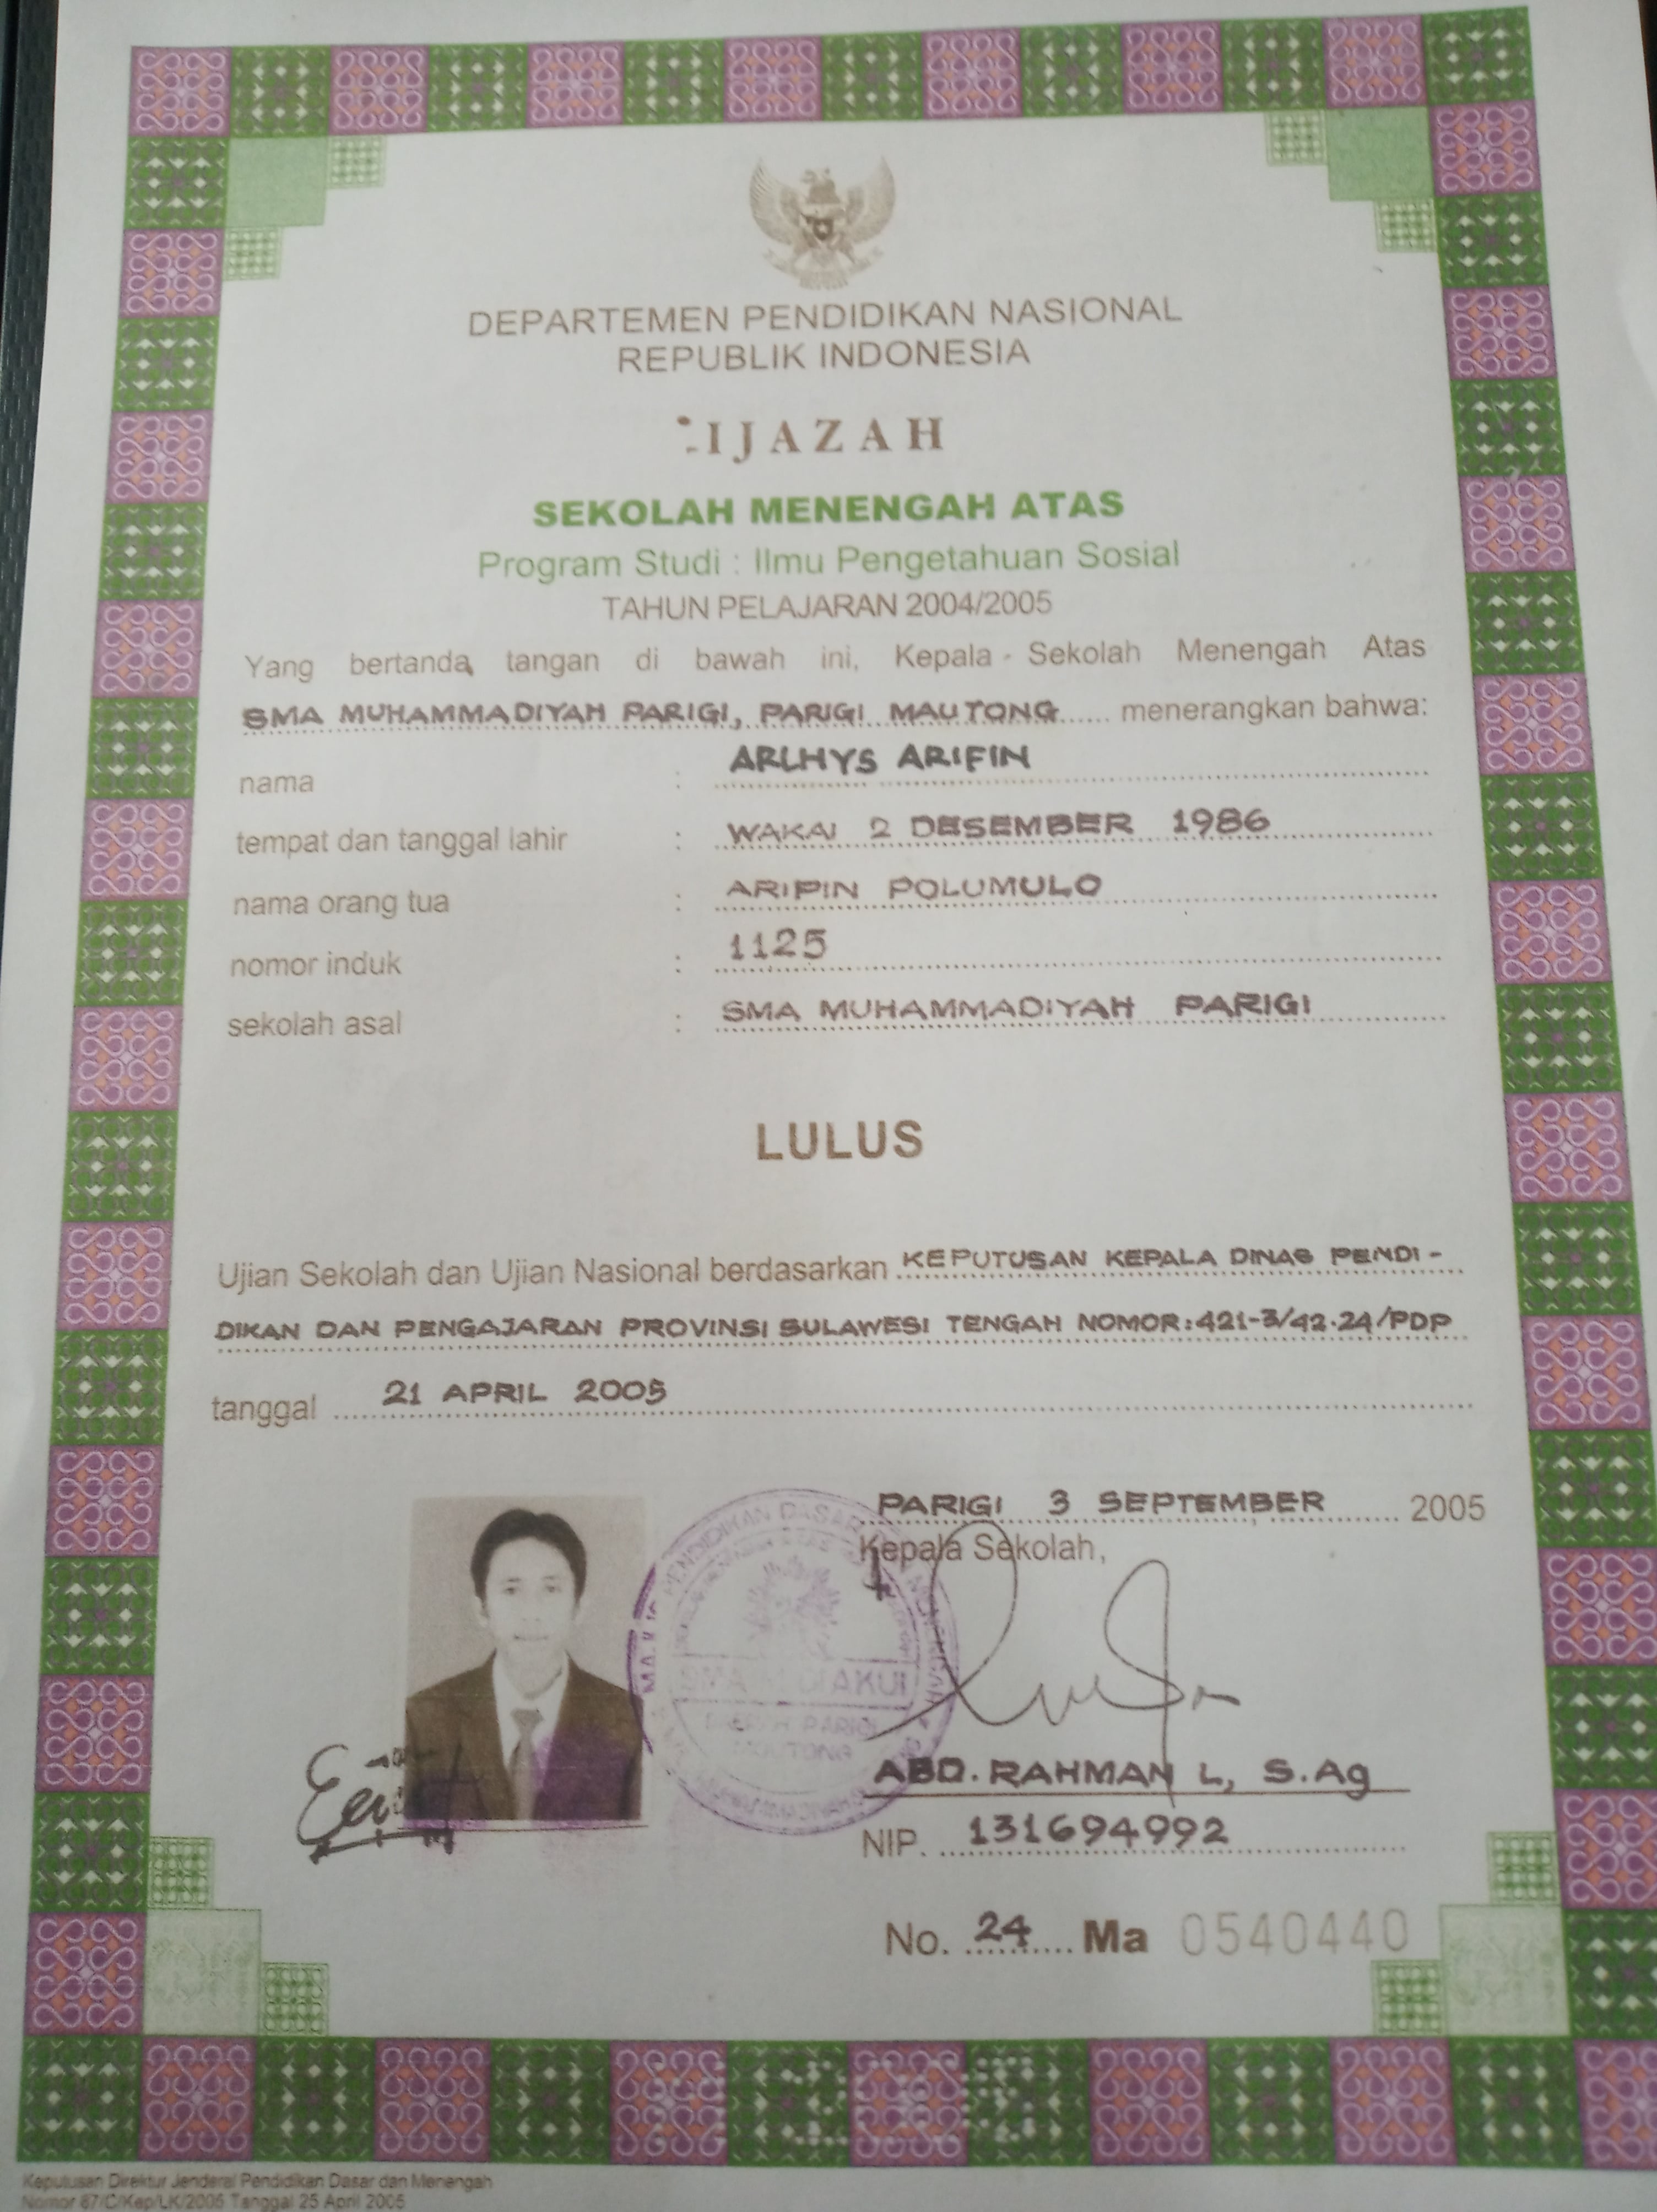 DEPARTEMEN PENDIDIKAN NASIONAL
REPUBLIK INDONESIA
IJAZAH
SEKOLAH MENENGAH ATAS
Program Studi : Ilmu Pengetahuan Sosial
TAHUN PELAJARAN 2004/2005
Yang bertanda tangan di bawah ini, Kepala Sekolah Menengah Atas
SMA MUHAMMADIYAH PARIGI, PARIGI MAUTONG menerangkan bahwa:
nama : ARLHYS ARIFIN
tempat dan tanggal lahir : WAKAI 2 DESEMBER 1986
nama orang tua : ARIPIN POLUMULO
nomor induk : 1125
sekolah asal : SMA MUHAMMADIYAH PARIGI
LULUS
Ujian Sekolah dan Ujian Nasional berdasarkan KEPUTUSAN KEPALA DINAS PENDI-
DIKAN DAN PENGAJARAN PROVINSI SULAWESI TENGAH NOMOR:421-3/42.24/PDP
tanggal 21 APRIL 2005
PARIGI 3 SEPTEMBER 2005
Kepala Sekolah,
PENDIDIKAN DASAR
SMA DIAKUI
DAERAH PARIGI
MOUTONG
ABD. RAHMAN L, S.Ag
NIP. 131694992
No. 24 Ma 0540440
Keputusan Direktur Jenderal Pendidikan Dasar dan Menengah
Nomor 87/C/Kep/LK/2005 Tanggal 25 April 2005